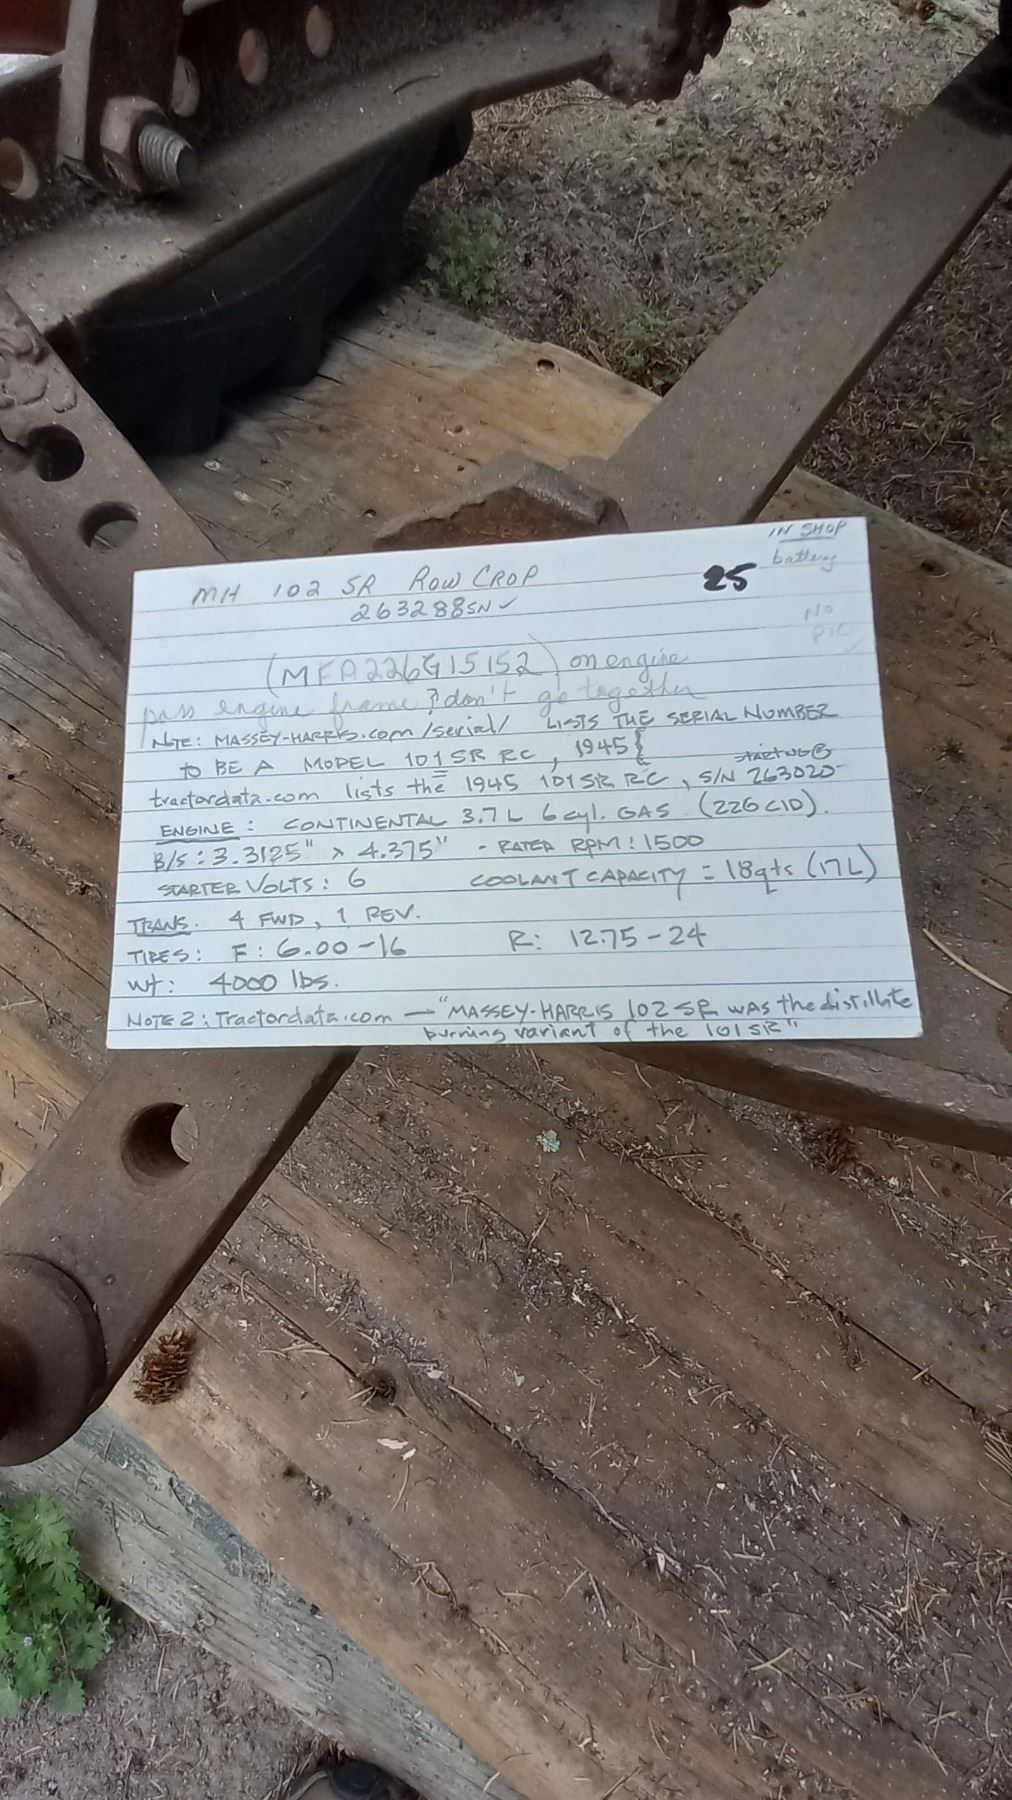 IN SHOP
battery
25
NO
PIC
MH 102 SR ROW CROP
263288SN ✓
(MFA226G15152) on engine
pass engine frame ? don't go together
NOTE: MASSEY-HARRIS.com/serial/ LISTS THE SERIAL NUMBER
TO BE A MODEL 101 SR RC, 1945 {
starting @
tractordata.com lists the 1945 101SR RC, S/N 263020
ENGINE: CONTINENTAL 3.7L 6 cyl. GAS (226 CID).
B/S: 3.3125" x 4.375" - RATED RPM: 1500
STARTER VOLTS: 6 COOLANT CAPACITY = 18qts (17L)
TRANS. 4 FWD, 1 REV.
TIRES: F: 6.00-16 R: 12.75-24
Wt: 4000 lbs.
NOTE 2: Tractordata.com — "MASSEY-HARRIS 102 SR was the distillate
burning variant of the 101SR"